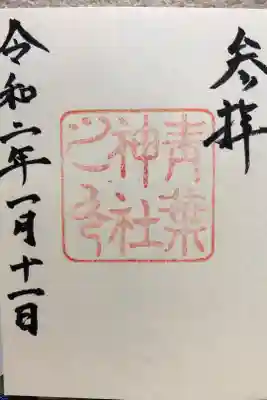 参拝
青葉
神社
之印
令和二年一月十一日